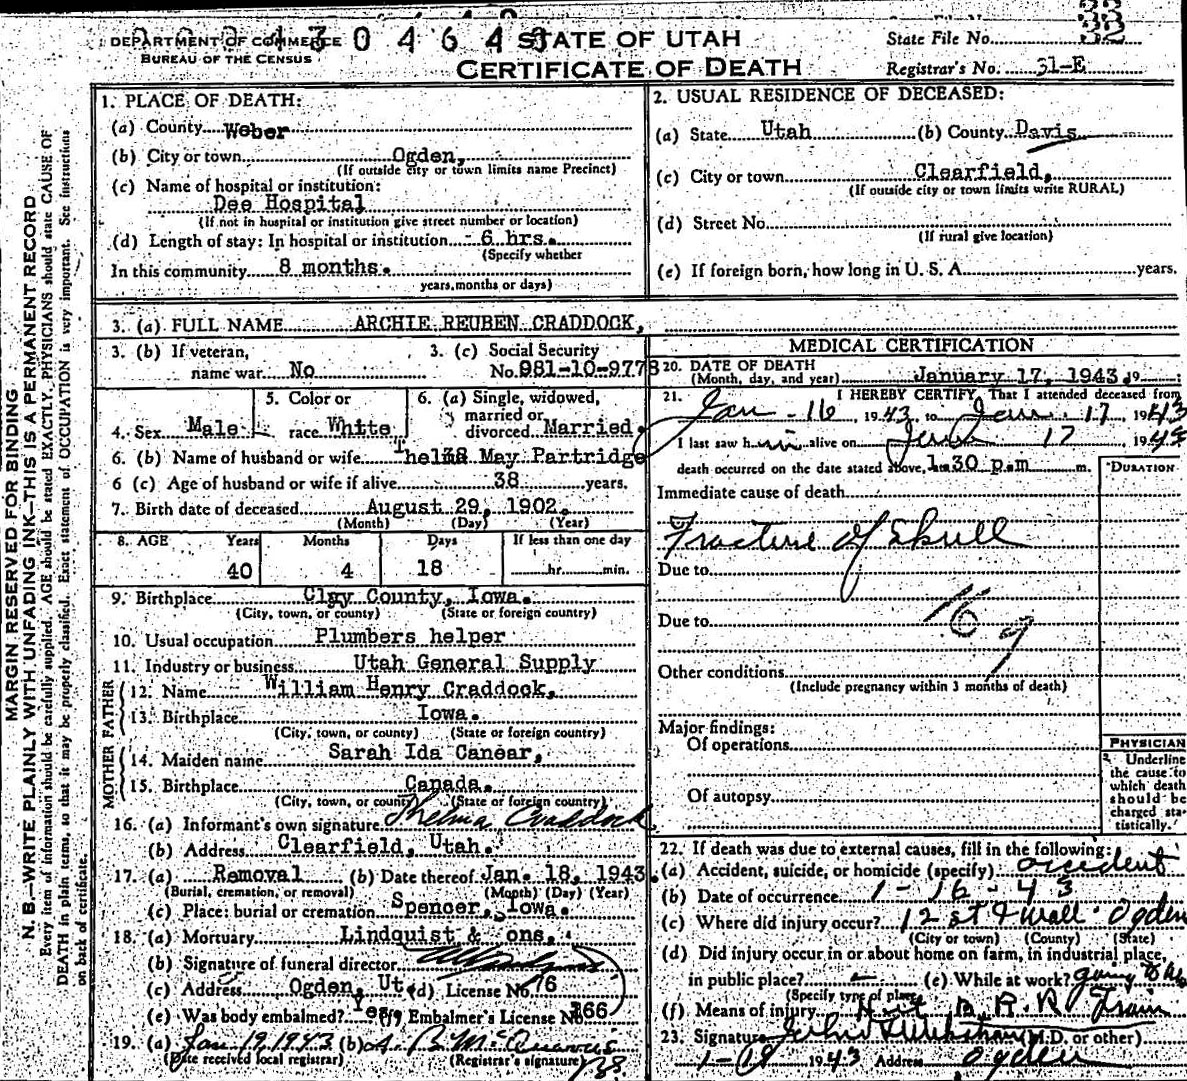 DEPARTMENT OF COMMERCE
BUREAU OF THE CENSUS
STATE OF UTAH
CERTIFICATE OF DEATH
State File No.
Registrar's No. 31-E
MARGIN RESERVED FOR BINDING
N. B.—WRITE PLAINLY WITH UNFADING INK—THIS IS A PERMANENT RECORD
Every item of information should be carefully supplied. AGE should be stated EXACTLY. PHYSICIANS should state CAUSE OF
DEATH in plain terms, so that it may be properly classified. Exact statement of OCCUPATION is very important. See instructions
on back of certificate.
1. PLACE OF DEATH:
(a) County Weber
(b) City or town Ogden,
(If outside city or town limits name Precinct)
(c) Name of hospital or institution:
Dee Hospital
(If not in hospital or institution give street number or location)
(d) Length of stay: In hospital or institution - 6 hrs.
(Specify whether
In this community 8 months.
years, months or days)
2. USUAL RESIDENCE OF DECEASED:
(a) State Utah (b) County Davis
(c) City or town Clearfield,
(If outside city or town limits write RURAL)
(d) Street No.
(If rural give location)
(e) If foreign born, how long in U. S. A. years.
3. (a) FULL NAME ARCHIE REUBEN CRADDOCK,
3. (b) If veteran,
name war No
3. (c) Social Security
No. 981-10-9778
4. Sex Male
5. Color or
race White
6. (a) Single, widowed,
married or
divorced Married.
6. (b) Name of husband or wife Thelma May Partridge
6 (c) Age of husband or wife if alive 38 years.
7. Birth date of deceased August 29, 1902.
(Month) (Day) (Year)
8. AGE Years Months Days If less than one day
40 4 18 hr. min.
9. Birthplace Clay County, Iowa.
(City, town, or county) (State or foreign country)
10. Usual occupation Plumbers helper
11. Industry or business Utah General Supply
FATHER
12. Name William Henry Craddock,
13. Birthplace Iowa.
(City, town, or county) (State or foreign country)
MOTHER
14. Maiden name Sarah Ida Canear,
15. Birthplace Canada.
(City, town, or county) (State or foreign country)
16. (a) Informant's own signature Thelma Craddock
(b) Address Clearfield, Utah.
17. (a) Removal (b) Date thereof Jan. 18, 1943.
(Burial, cremation, or removal) (Month) (Day) (Year)
(c) Place: burial or cremation Spencer, Iowa.
18. (a) Mortuary Lindquist & ons,
(b) Signature of funeral director
(c) Address Ogden, Ut. (d) License No. 76
(e) Was body embalmed? Yes (f) Embalmer's License No. 366
19. (a) Jan 19 1943 (b)
(Date received local registrar) (Registrar's signature)
MEDICAL CERTIFICATION
20. DATE OF DEATH
(Month, day, and year) January 17, 1943. 19
21. I HEREBY CERTIFY, That I attended deceased from
Jan - 16, 1943, to Jan 17, 1943
I last saw him alive on Jan 17, 1943
death occurred on the date stated above, 1.30 p.m m.
DURATION
Immediate cause of death
Fracture of Skull
Due to
Due to
16 9
Other conditions
(Include pregnancy within 3 months of death)
Major findings:
Of operations
Of autopsy
PHYSICIAN
Underline
the cause to
which death
should be
charged sta-
tistically.
22. If death was due to external causes, fill in the following:
(a) Accident, suicide, or homicide (specify) accident
(b) Date of occurrence 1 - 16 - 43
(c) Where did injury occur? 12 st & Wall Ogden
(City or town) (County) (State)
(d) Did injury occur in or about home on farm, in industrial place,
in public place? (e) While at work? going to
(Specify type of place)
(f) Means of injury Hit R. R. Train
23. Signature (M.D. or other)
1-18 1943 Address Ogden